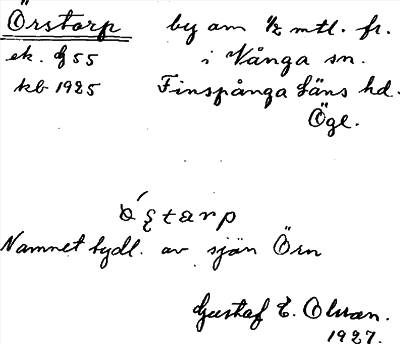 Örstorp by om 1/2 mtl. fr.
ek. bj 55 i Vånga sn.
kb 1925 Finspånga läns hd.
Ögl.
Namnet tydl. av sjön Örn
Gustaf E. Olsson.
1927.